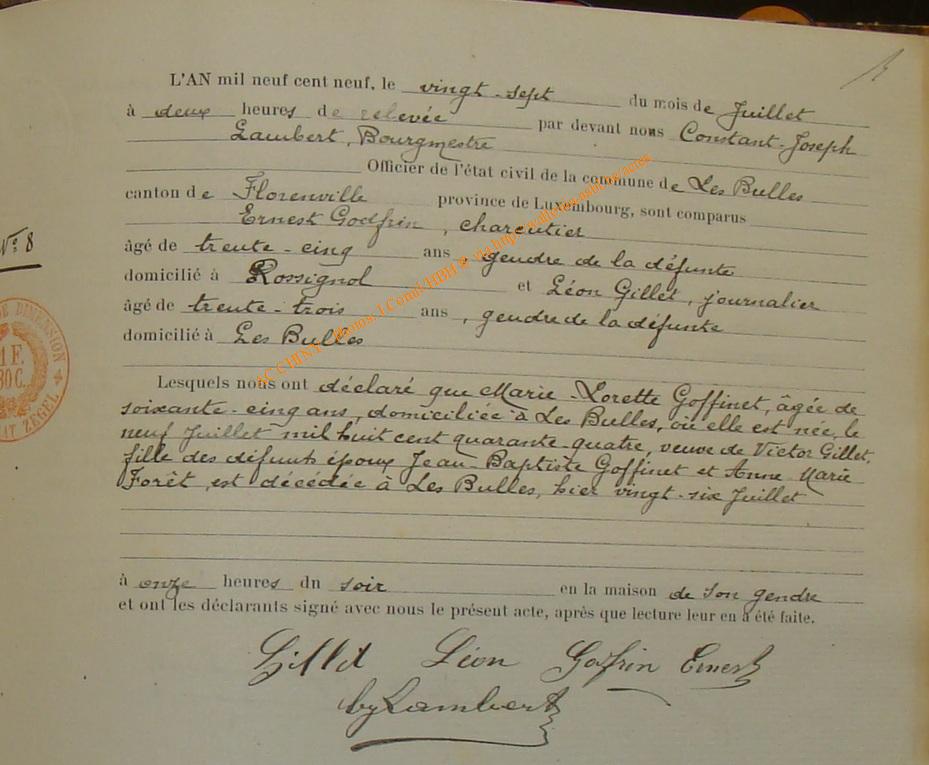 L'AN mil neuf cent neuf, le vingt-sept du mois de Juillet
à deux heures de relevée par devant nous Constant-Joseph
Lambert, Bourgmestre
Officier de l'état civil de la commune de Les Bulles
canton de Florenville province de Luxembourg, sont comparus
Ernest Godfrin, charcutier
Nº 8
âgé de trente-cinq ans, gendre de la défunte
domicilié à Rossignol et Léon Gillet, journalier
âgé de trente-trois ans, gendre de la défunte
domicilié à Les Bulles
DE DIMENSION
1 F.
30 C.
ZEGEL
Lesquels nous ont déclaré que Marie-Lorette Goffinet, âgée de
soixante-cinq ans, domiciliée à Les Bulles, où elle est née, le
neuf Juillet mil huit cent quarante-quatre, veuve de Victor Gillet,
fille des défunts époux Jean-Baptiste Goffinet et Anne Marie
Forêt, est décédée à Les Bulles, hier vingt-six Juillet
à onze heures du soir en la maison de son gendre
et ont les déclarants signé avec nous le présent acte, après que lecture leur en a été faite.
Gillet Léon Godfrin Ernest
Lambert